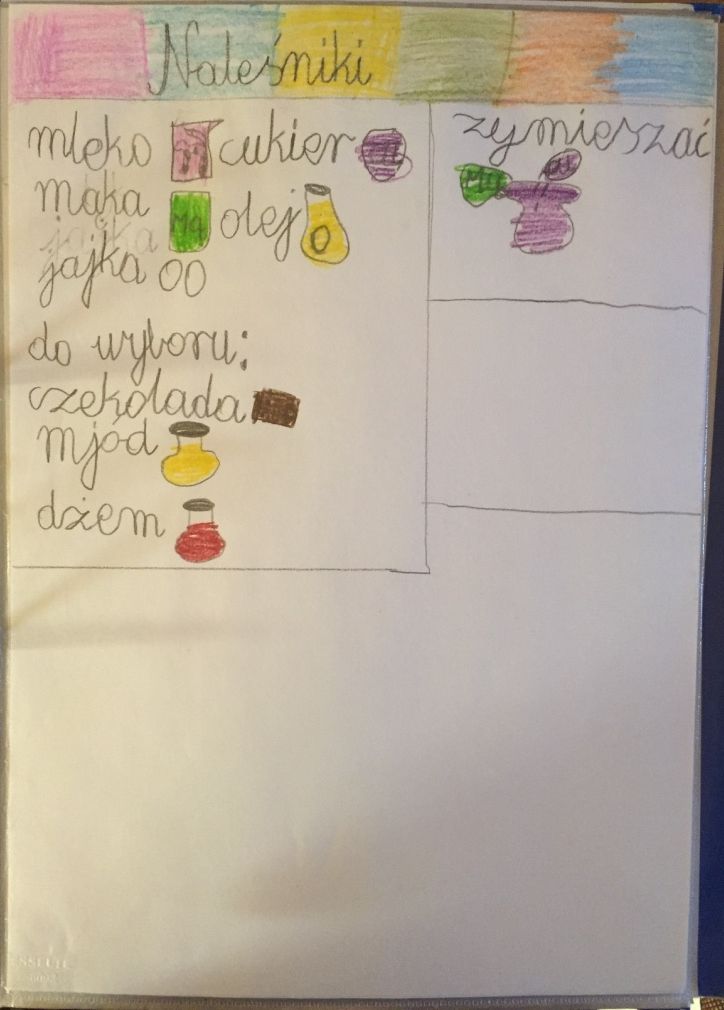 Naleśniki
mleko m cukier cu
mąka Mą olej O
jajka
jajka
do wyboru:
czekolada
mjód
dżem
zymieszać
Mą cu